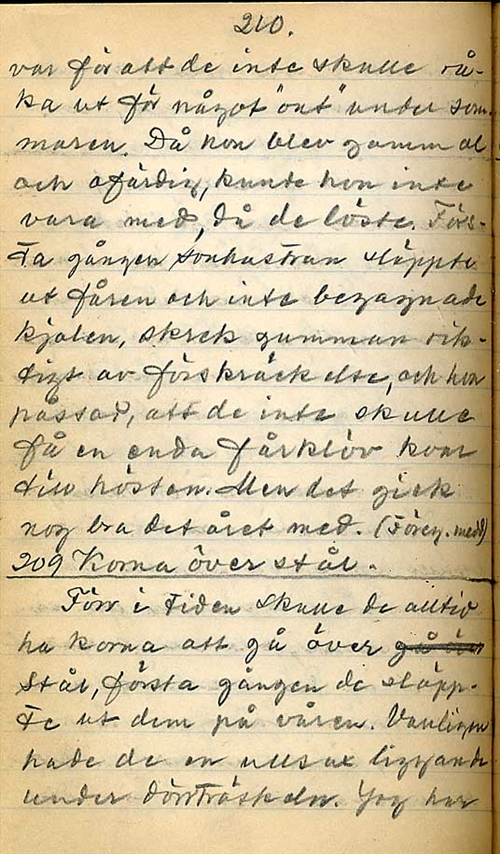 210.
var för att de inte skulle rå-
ka ut för något "ont" under som-
maren. Då hon blev gammal
och ofärdig, kunde hon inte
vara med, då de löste. Förs-
ta gången sonhustrun släppte
ut fåren och inte begagnade
kjolen, skrek gumman rik-
tigt av förskräckelse, och hon
påssod, att de inte skulle
få en enda fårklöv kvar
till hösten. Men det gick
nog bra det året med. (Föreg. medd)
209 Korna över stål.
Förr i tiden skulle de alltid
ha korna att gå över
stål, första gången de släpp-
te ut dem på våren. Vanligen
hade de en ullsax liggande
under dörrtröskeln. Jag har